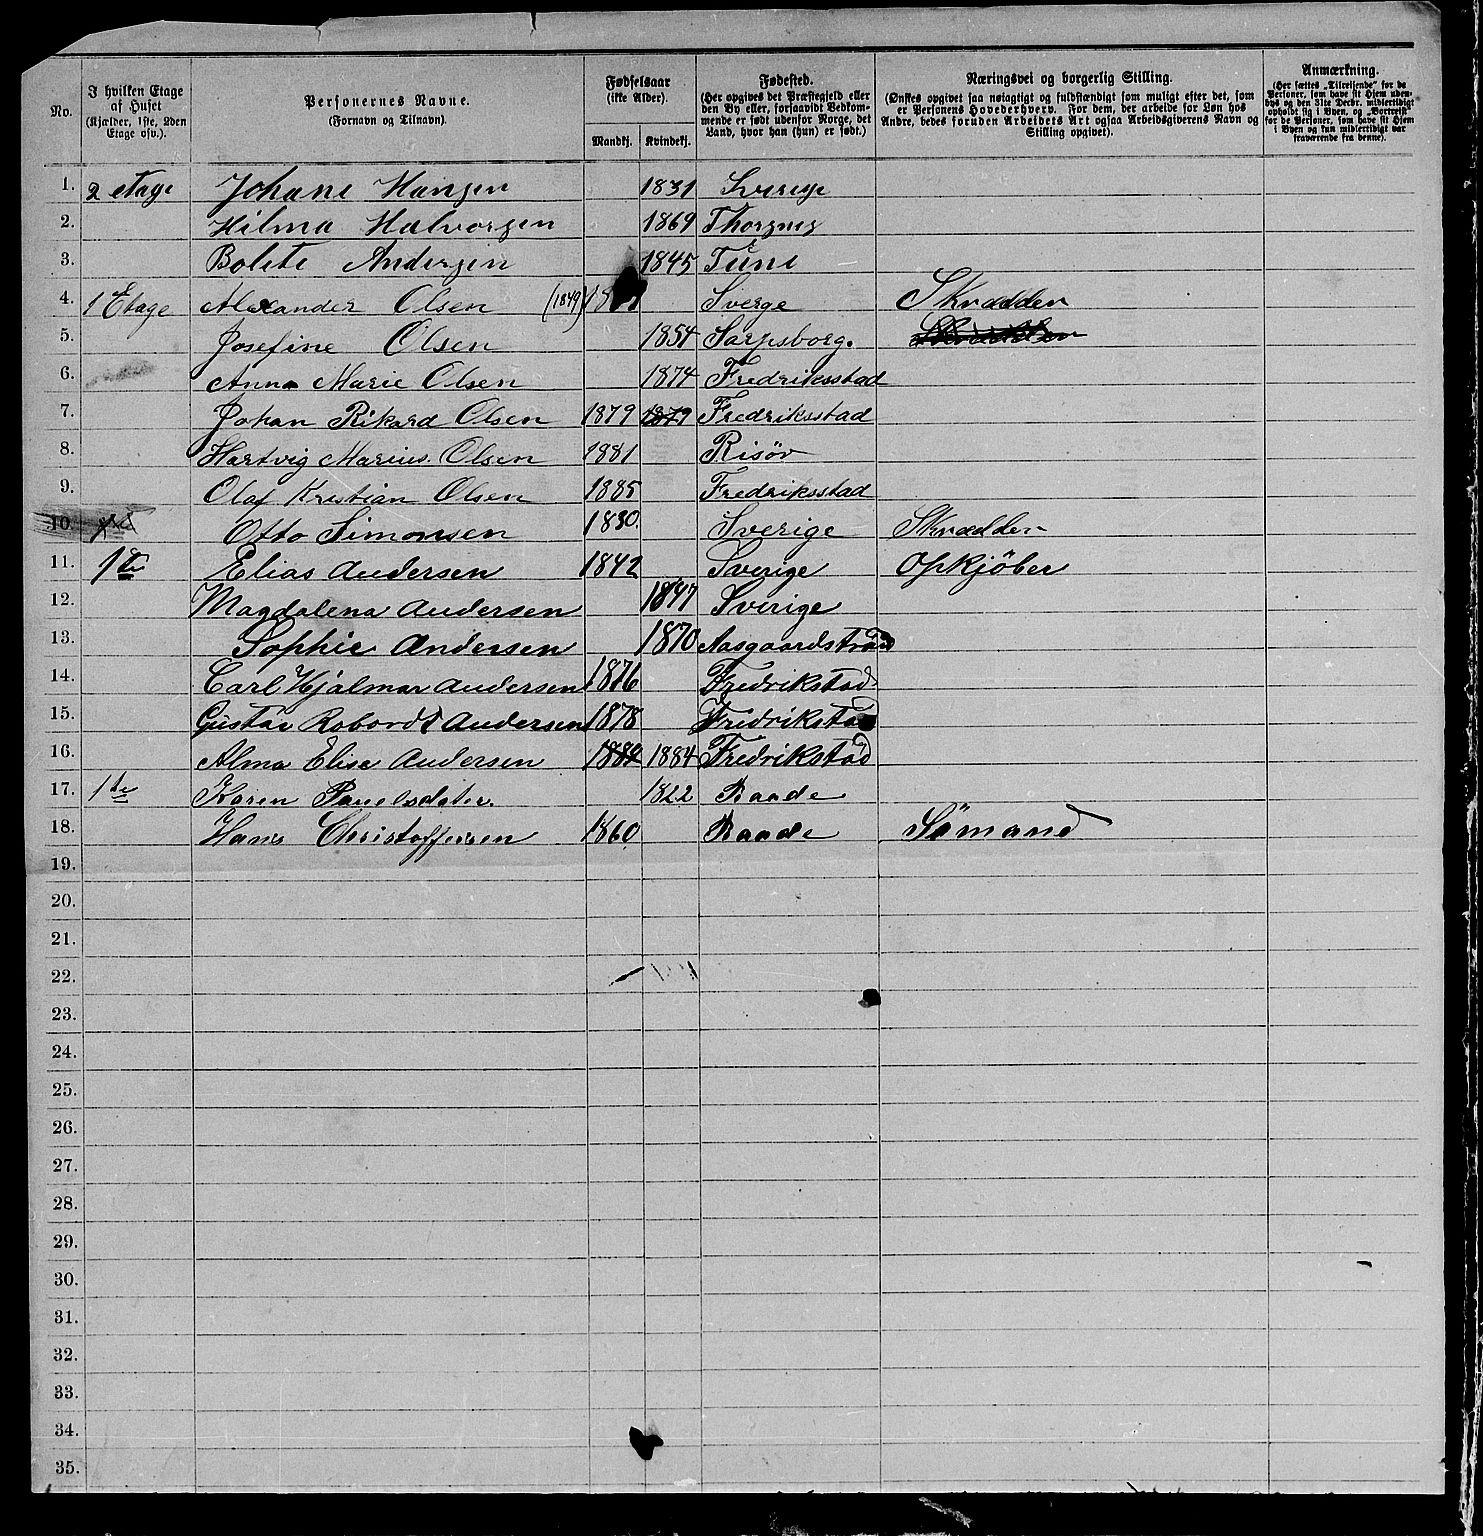 No.
I hvilken Etage af Huset (Kjælder, 1ste, 2den Etage osv.).
Personernes Navne. (Fornavn og Tilnavn).
Fødselsaar (ikke Alder).
Mandkj. Kvindekj.
Fødested. (Her opgives det Præstegjeld eller den By eller, forsaavidt Vedkommende er født udenfor Norge, det Land, hvor han (hun) er født.)
Næringsvei og borgerlig Stilling. (Ønskes opgivet saa nøiagtigt og fuldstændigt som muligt efter det, som er Personens Hovederhverv. For dem, der arbeide for Løn hos Andre, bedes foruden Arbeidets Art ogsaa Arbeidsgiverens Navn og Stilling opgivet).
Anmærkning. (Her sættes „Tilreisende" for de Personer, som have sit Hjem udenbys og den 31te Decbr. midlertidigt opholdt sig i Byen, og „Bortreist" for de Personer, som have sit Hjem i Byen og kun midlertidigt var fraværende fra denne).
1. 2 etage Johane Hansen 1831 Sverige
2. Hilma Halvorsen 1869 Thorsnes
3. Bolete Andersen 1845 Tune
4. 1 Etage Alexander Olsen (1849) Sverge Skrædder
5. Josefine Olsen 1854 Sarpsborg.
6. Anna Marie Olsen 1874 Fredriksstad
7. Johan Rikard Olsen 1879 1879 Fredriksstad
8. Hartvig Marius Olsen 1881 Risör
9. Olaf Kristian Olsen 1885 Fredriksstad
10. Otto Simonsen 1830. Sverige Skrædder
11. 1te Elias Andersen 1842 Sverige Opkjöber
12. Magdalena Andersen 1847 Sverige
13. Sophie Andersen 1870 Aasgaardstrand
14. Carl Hjalmar Andersen 1876 Fredrikstad
15. Gustav Robordt Andersen 1878 Fredrikstad
16. Alma Elise Andersen 1884 1884 Fredrikstad
17. 1te Karen Paulsdater. 1822 Raade
18. Hans Christoffersen 1860 Raade Sömand
19.
20.
21.
22.
23.
24.
25.
26.
27.
28.
29.
30.
31.
32.
33.
34.
35.